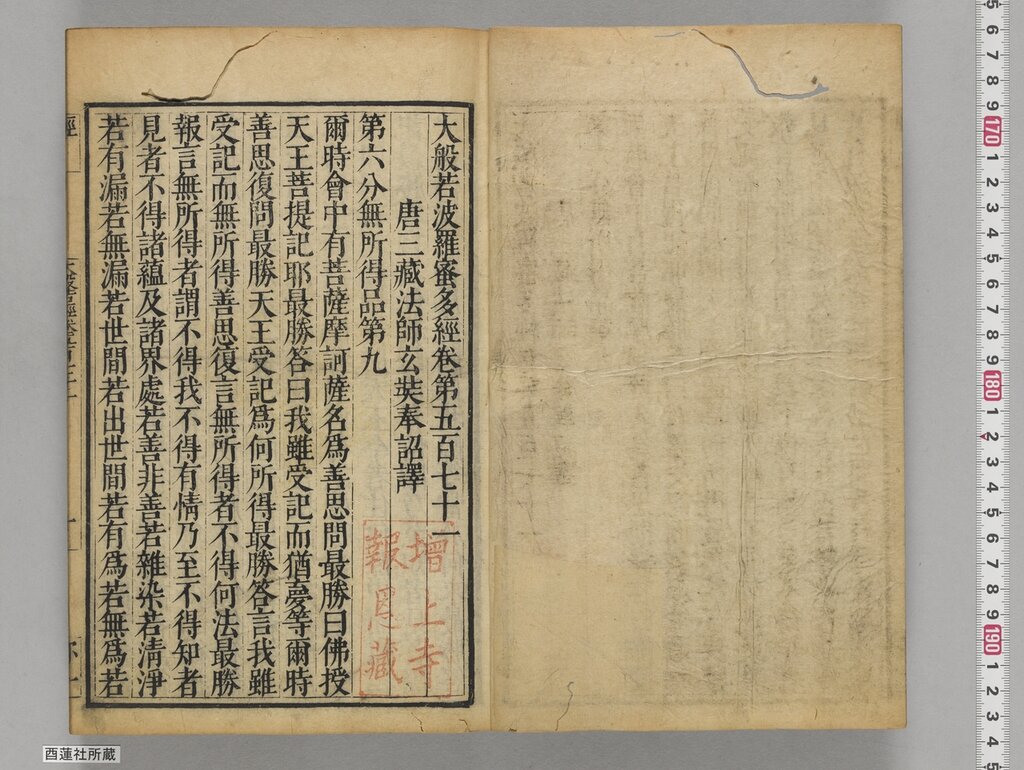 大般若波羅蜜多經卷第五百七十一
唐三藏法師玄奘奉詔譯
第六分無所得品第九
爾時會中有菩薩摩訶薩名爲善思問最勝曰佛授
天王菩提記耶最勝答曰我雖受記而猶夢等爾時
善思復問最勝天王受記爲何所得最勝答言我雖
受記而無所得善思復言無所得者不得何法最勝
報言無所得者謂不得我不得有情乃至不得知者
見者不得諸蘊及諸界處若善非善若雜染若清淨
若有漏若無漏若世間若出世間若有爲若無爲若
增上寺
報恩藏
酉蓮社所蔵
5 6 7 8 9 170 1 2 3 4 5 6 7 8 9 180 1 2 3 4 5 6 7 8 9 190 1 2 3 4 5